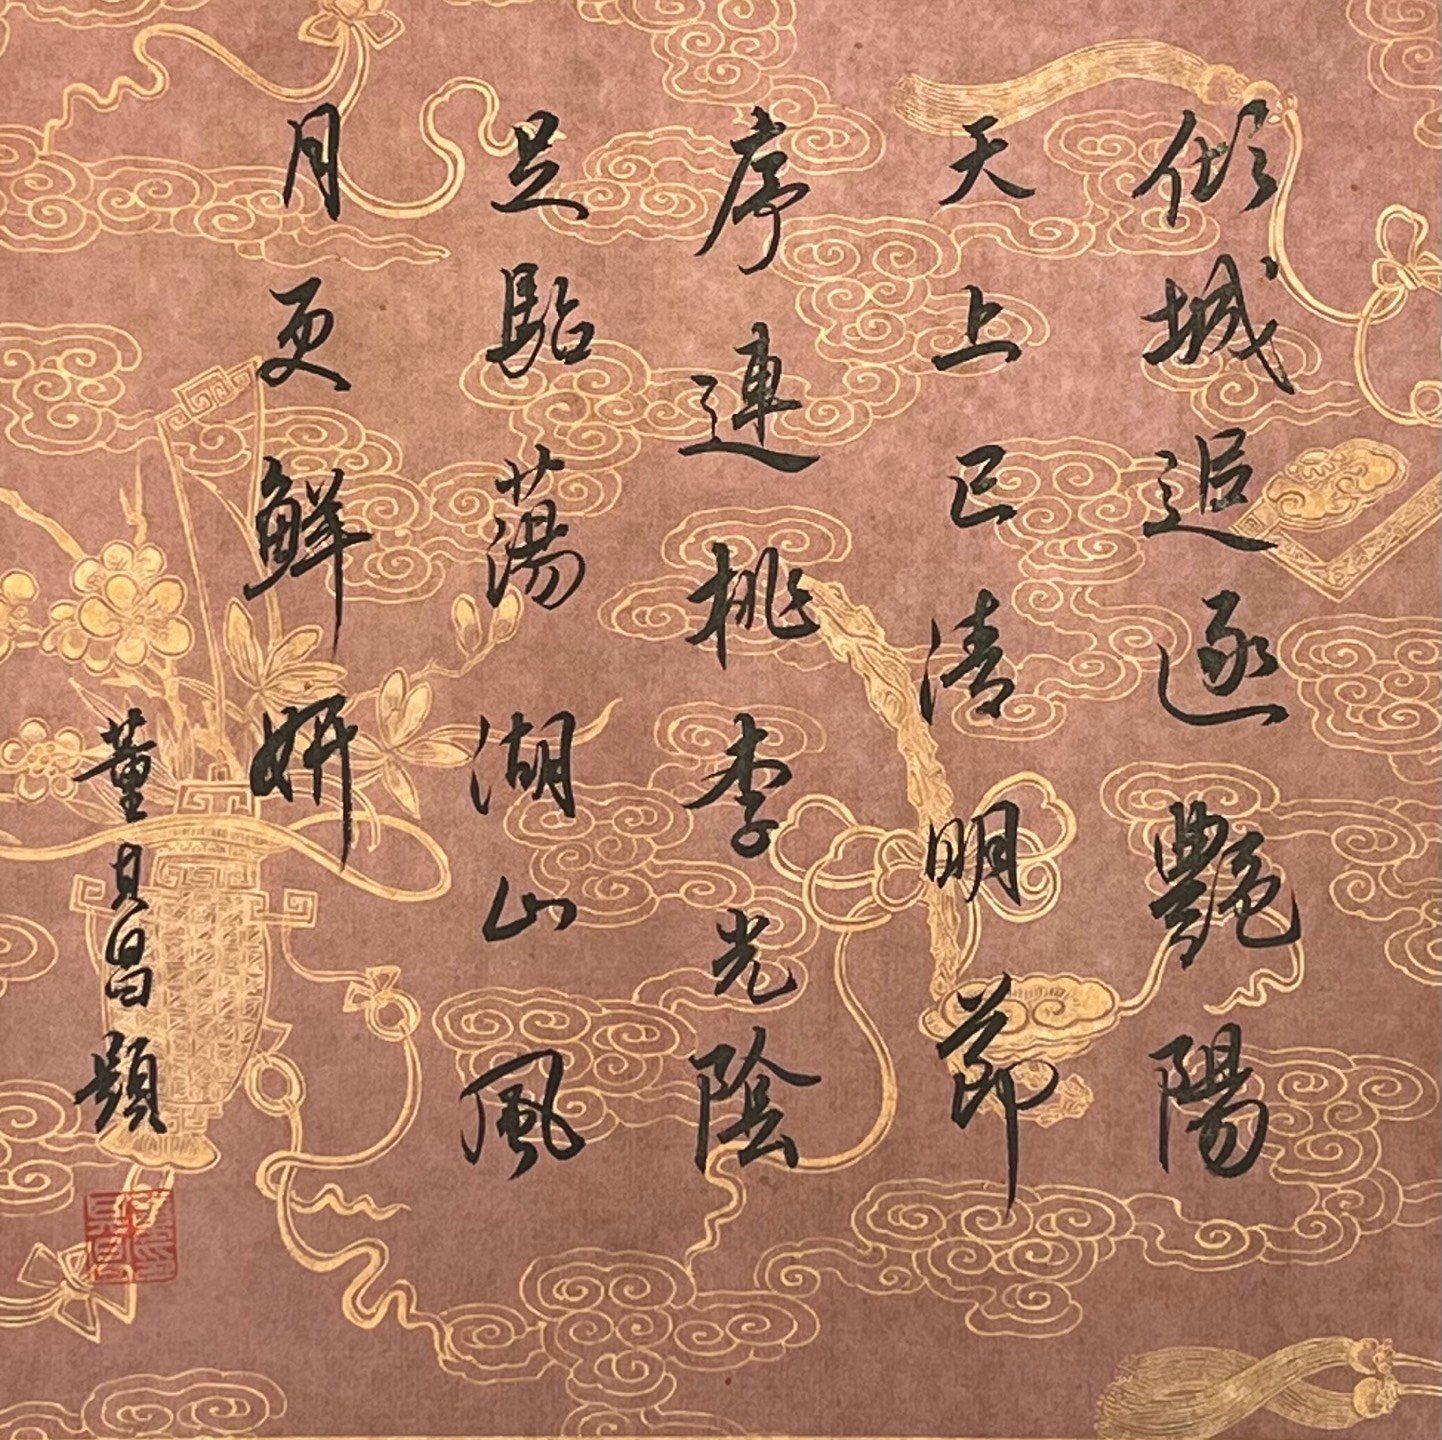 傾城追逐艷陽
天上巳清明節
序連桃李光陰
足駘蕩湖山風
月更鮮妍
董其昌題